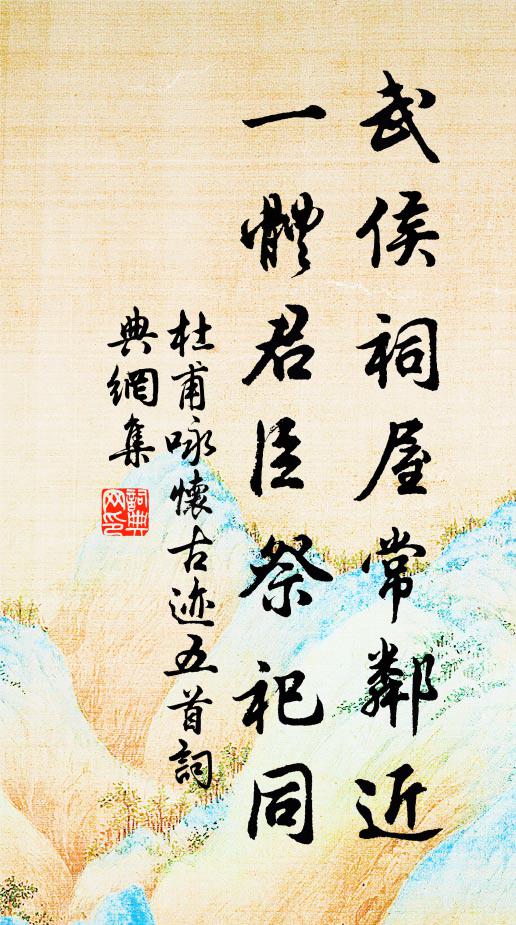 武侯祠屋常鄰近
一體君臣祭祀同
杜甫咏懷古迹五首詞
典網集
詞典
网印